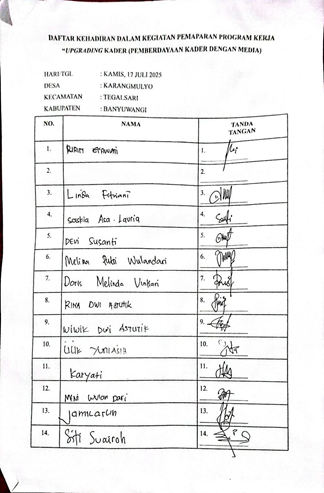 DAFTAR KEHADIRAN DALAM KEGIATAN PEMAPARAN PROGRAM KERJA
"UPGRADING KADER (PEMBERDAYAAN KADER DENGAN MEDIA)
HARI/TGL : KAMIS, 17 JULI 2025
DESA : KARANGMULYO
KECAMATAN : TEGALSARI
KABUPATEN : BANYUWANGI
NO. NAMA TANDA TANGAN
1. 1.
2. 2.
3. Linda Fitriani 3.
4. Saskia Aca Lauria 4.
5. Devi Susanti 5.
6. Melina Putri Wulandari 6.
7. Doris Melinda 7.
8. RINA DWI ASTUTIK 8.
9. WIWIK DWI ASTUTIK 9.
10. 10.
11. Karyati 11.
12. WULAN DARI 12.
13. Jamilatun 13.
14. Siti Suairoh 14.